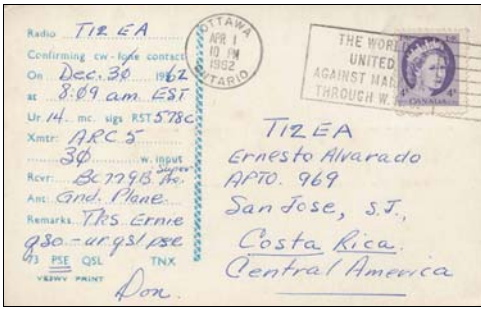 Radio TI2EA
Confirming cw-fone contact
On Dec. 3Ø 1962
at 8:Ø9 am EST
Ur 14 mc. sigs RST 578c
Xmtr: ARC 5
3Ø w. input
Rcvr: BC779B Super Pro.
Ant Gnd. Plane
Remarks Tks Ernie
qso - ur qsl pse
73 PSE QSL TNX
VE3WV PRINT
Don.
OTTAWA
APR 1
10 PM
1962
ONTARIO
THE WORL
UNITED
AGAINST MA
THROUGH W.
4¢ 4¢
CANADA
TI2EA
Ernesto Alvarado
APTO. 969
San Jose, S.J.,
Costa Rica.
Central America